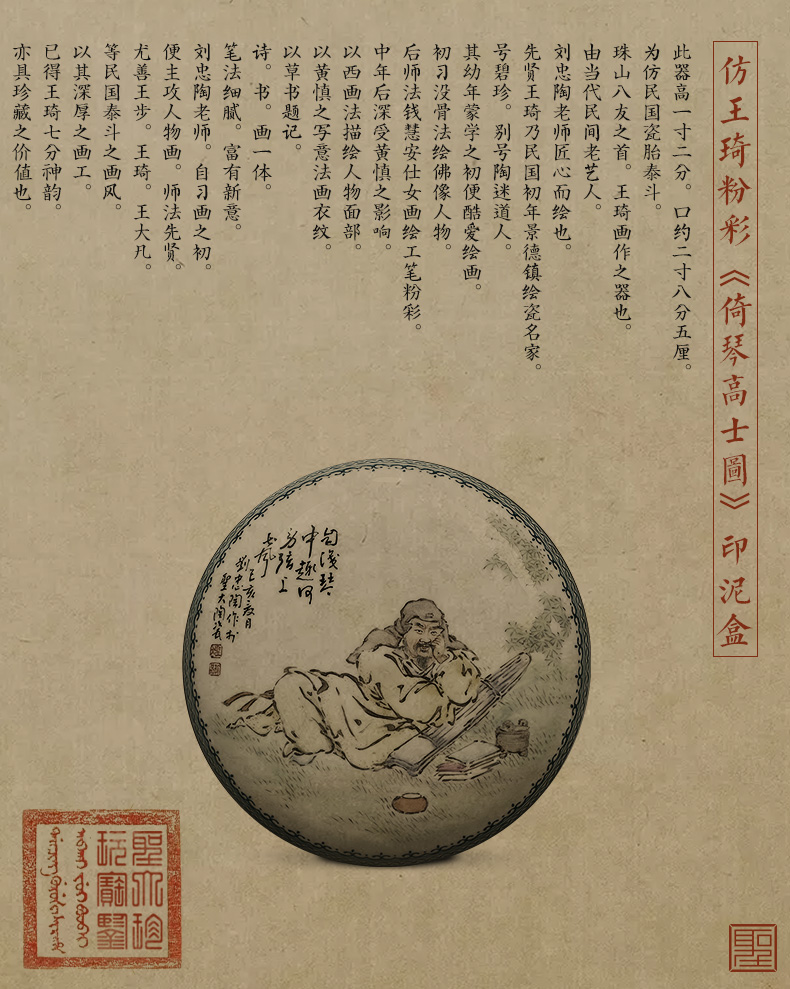 仿王琦粉彩《倚琴高士圖》印泥盒
此器高一寸二分。口约二寸八分五厘。
为仿民国瓷胎泰斗。
珠山八友之首。王琦画作之器也。
由当代民间老艺人。
刘忠陶老师匠心而绘也。
先贤王琦乃民国初年景德镇绘瓷名家。
号碧珍。别号陶迷道人。
其幼年蒙学之初便酷爱绘画。
初习没骨法绘佛像人物。
后师法钱慧安仕女画绘工笔粉彩。
中年后深受黄慎之影响。
以西画法描绘人物面部。
以黄慎之写意法画衣纹。
以草书题记。
诗。书。画一体。
笔法细腻。富有新意。
刘忠陶老师。自习画之初。
便主攻人物画。师法先贤。
尤善王步。王琦。王大凡。
等民国泰斗之画风。
以其深厚之画工。
已得王琦七分神韵。
亦具珍藏之价值也。
中趣何
劳弦上
己亥夏月
劉忠陶作於
聖